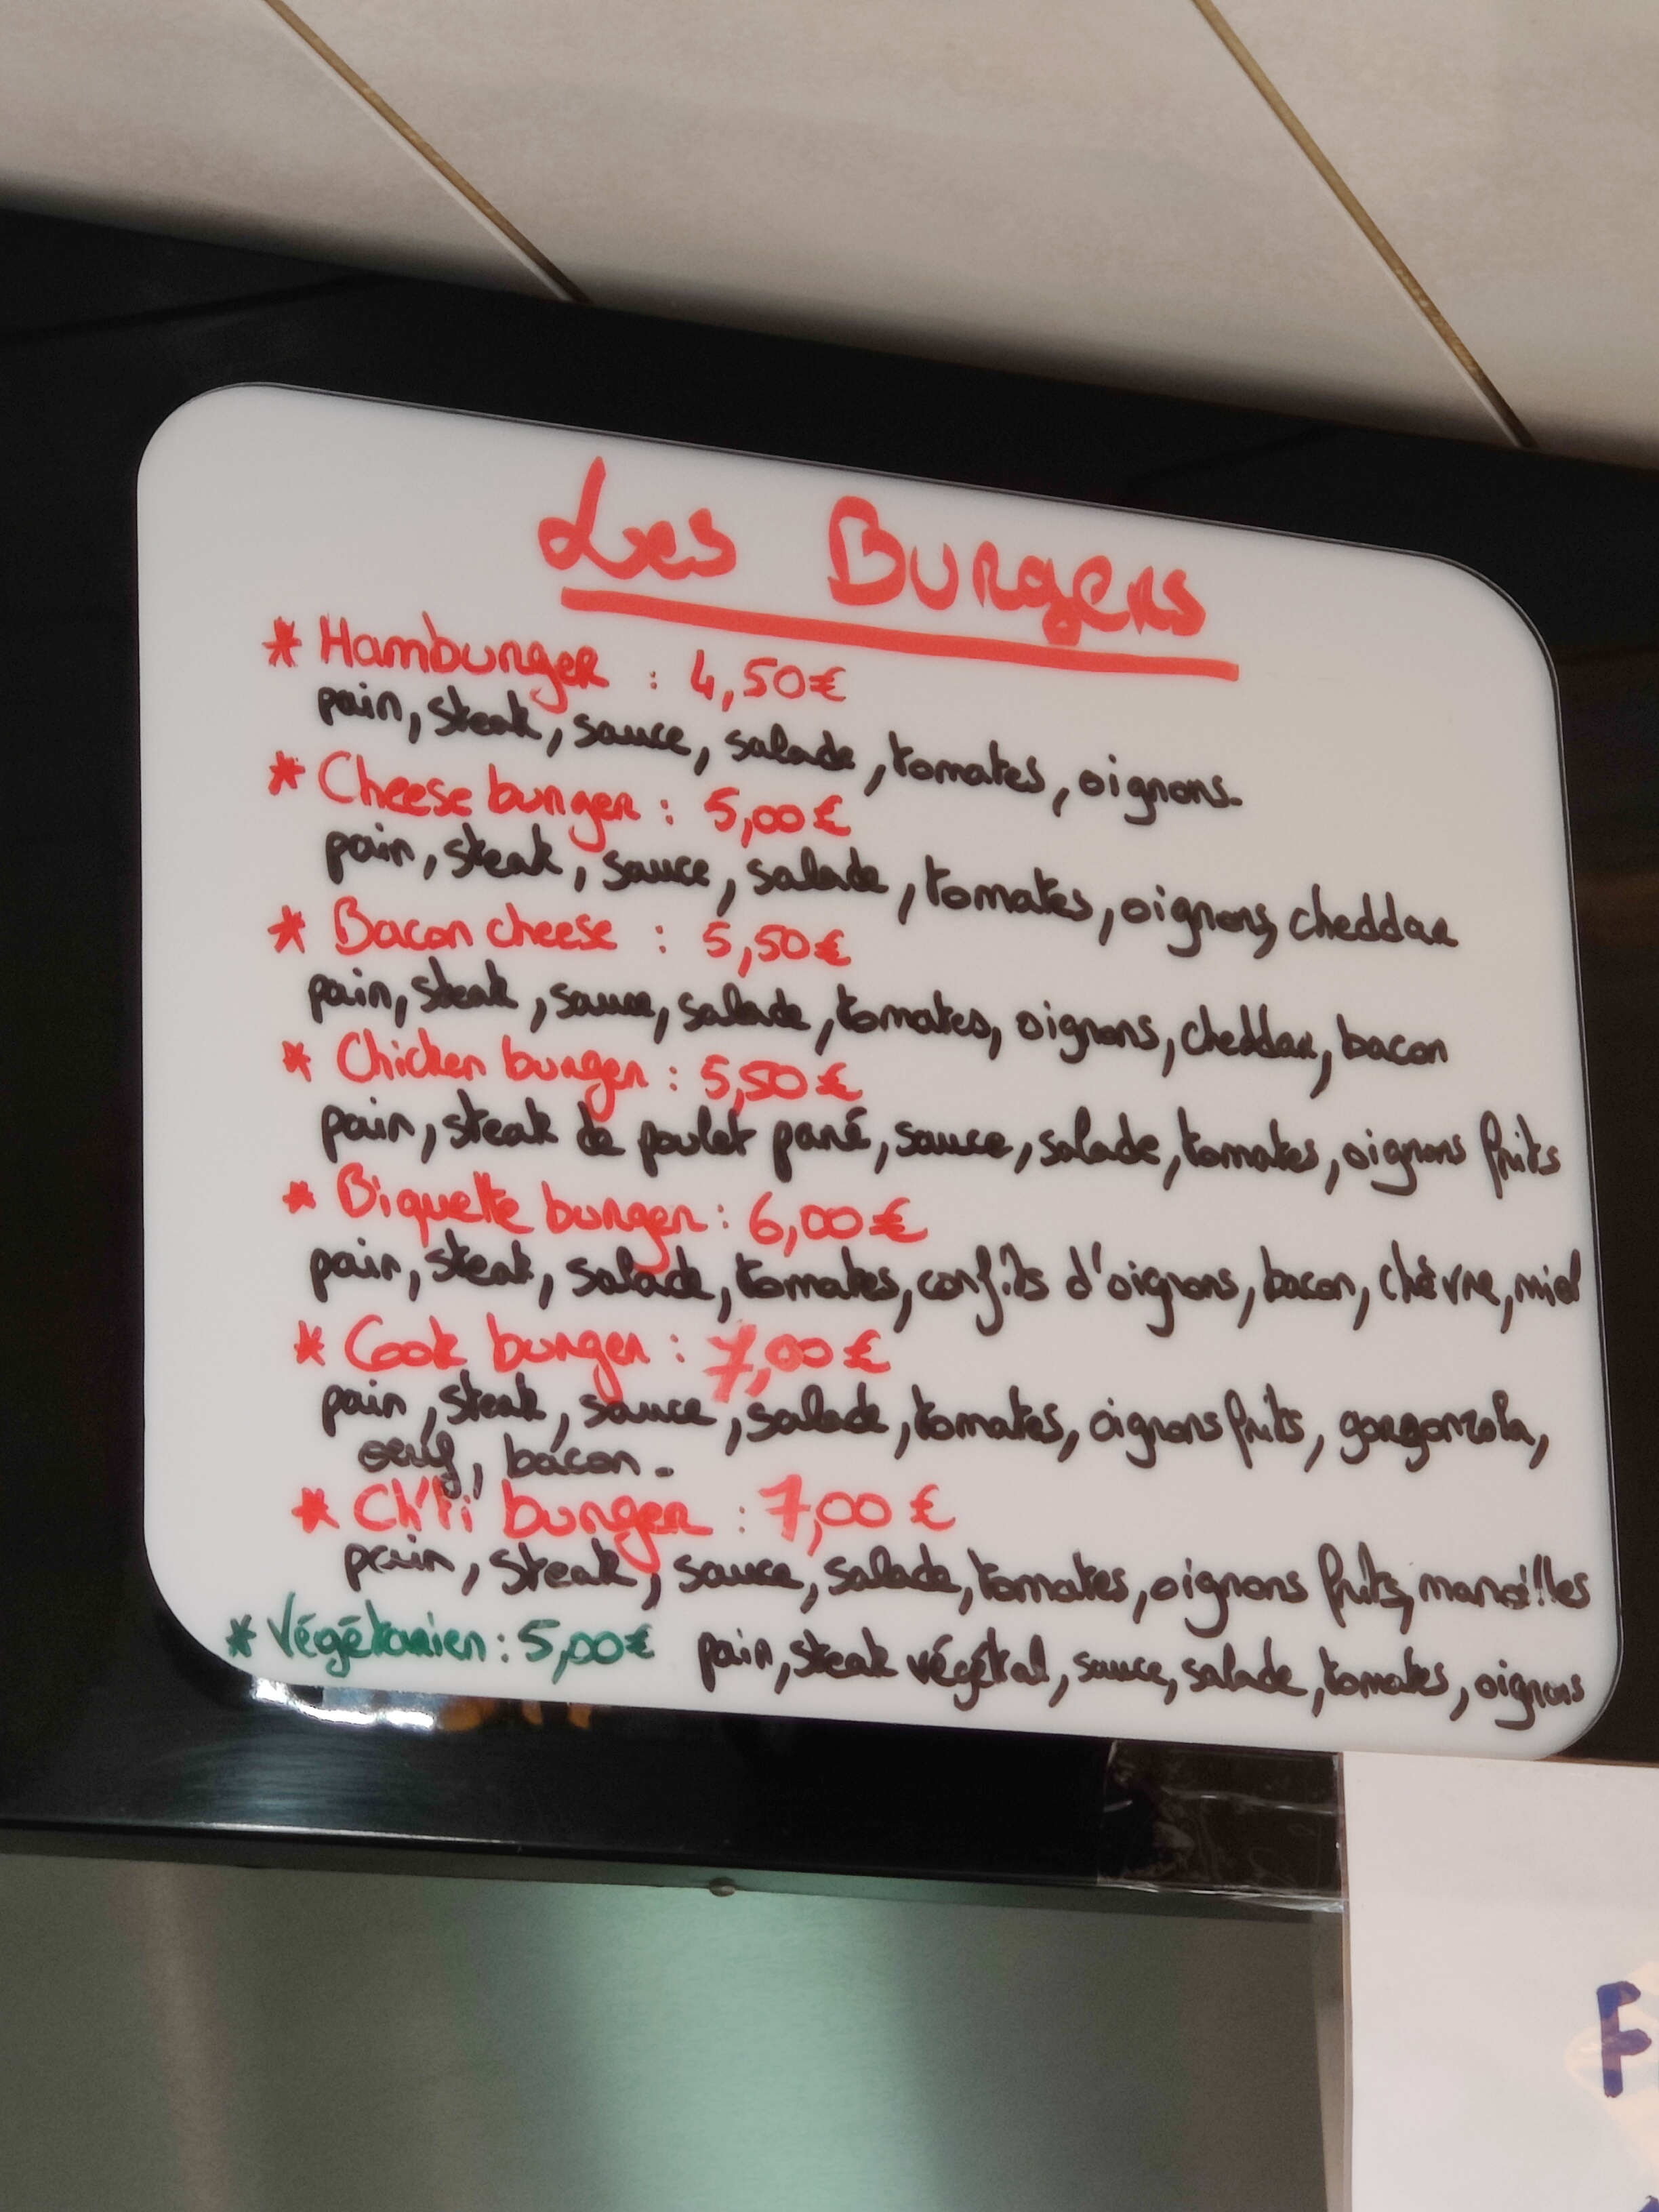 Les Burgers
* Hamburger : 4,50€
pain, steak, sauce, salade, tomates, oignons.
* Cheese burger : 5,00€
pain, steak, sauce, salade, tomates, oignons, cheddar
* Bacon cheese : 5,50€
pain, steak, sauce, salade, tomates, oignons, cheddar, bacon
* Chicken burger : 5,50€
pain, steak de poulet pané, sauce, salade, tomates, oignons frits
* Biquette burger : 6,00€
pain, steak, salade, tomates, confits d'oignons, bacon, chèvre, miel
* Cook burger : 7,00€
pain, steak, sauce, salade, tomates, oignons frits, gorgonzola,
oeuf, bacon.
* Ch'ti burger : 7,00€
pain, steak, sauce, salade, tomates, oignons frits, maroilles
* Végétarien : 5,00€ pain, steak végétal, sauce, salade, tomates, oignons
F